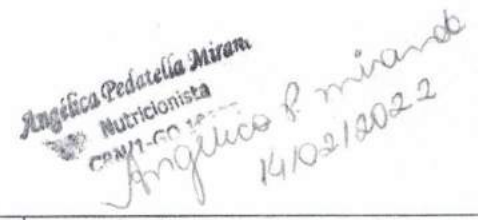 Angélica Pedatella Miran
Nutricionista
CRN/1-GO
Angélica P. miranda
14/02/2022